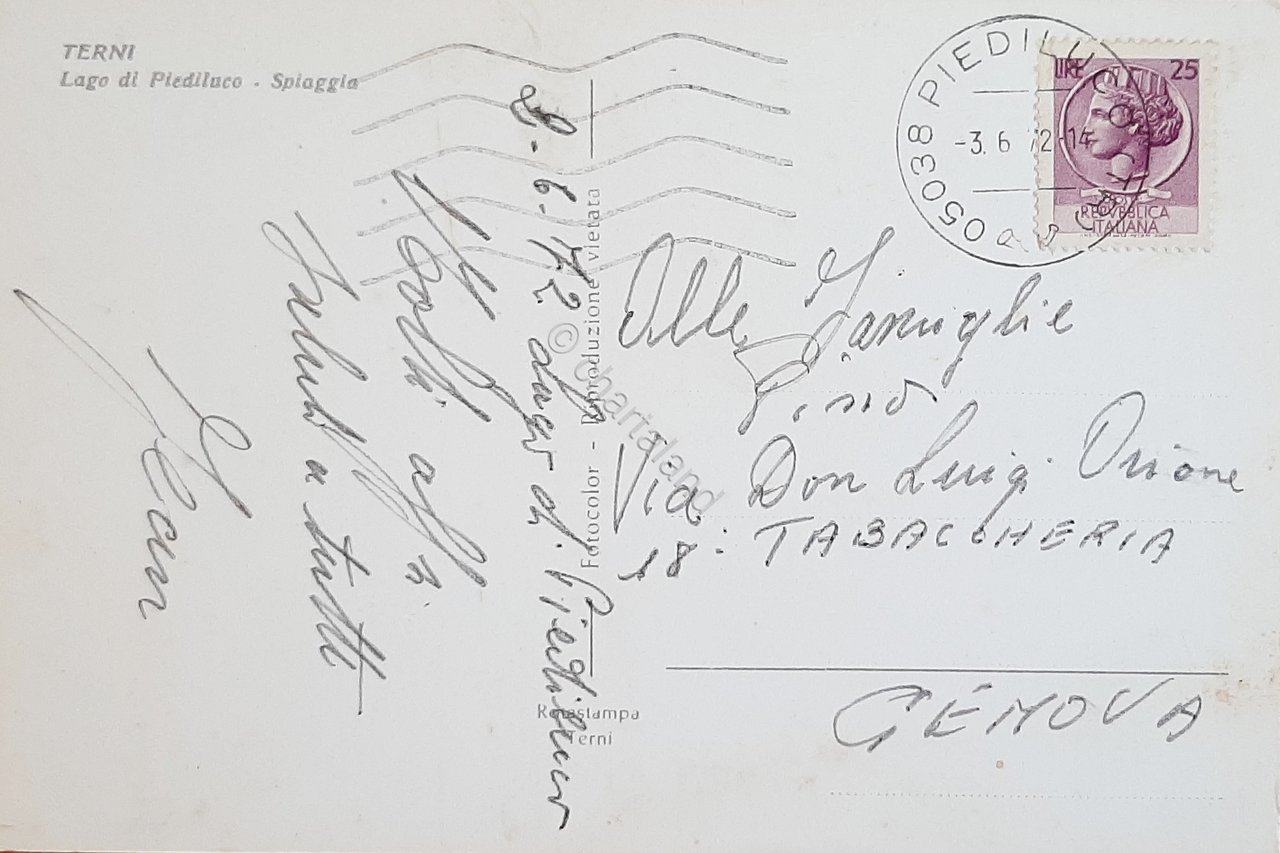 TERNI
Lago di Piediluco - Spiaggia
05038 PIEDILUCO
-3. 6 72-14
LIRE 25
POSTE
REPVBBLICA
ITALIANA
2-6-72 Lago di Piediluco
Molti aff.i
Saluti a tutti
Fotocolor - Riproduzione vietata
Rotastampa
Terni
Alle Famiglie
Pino
Via Don Luigi Orione
18: TABACCHERIA
GENOVA
© chartaland